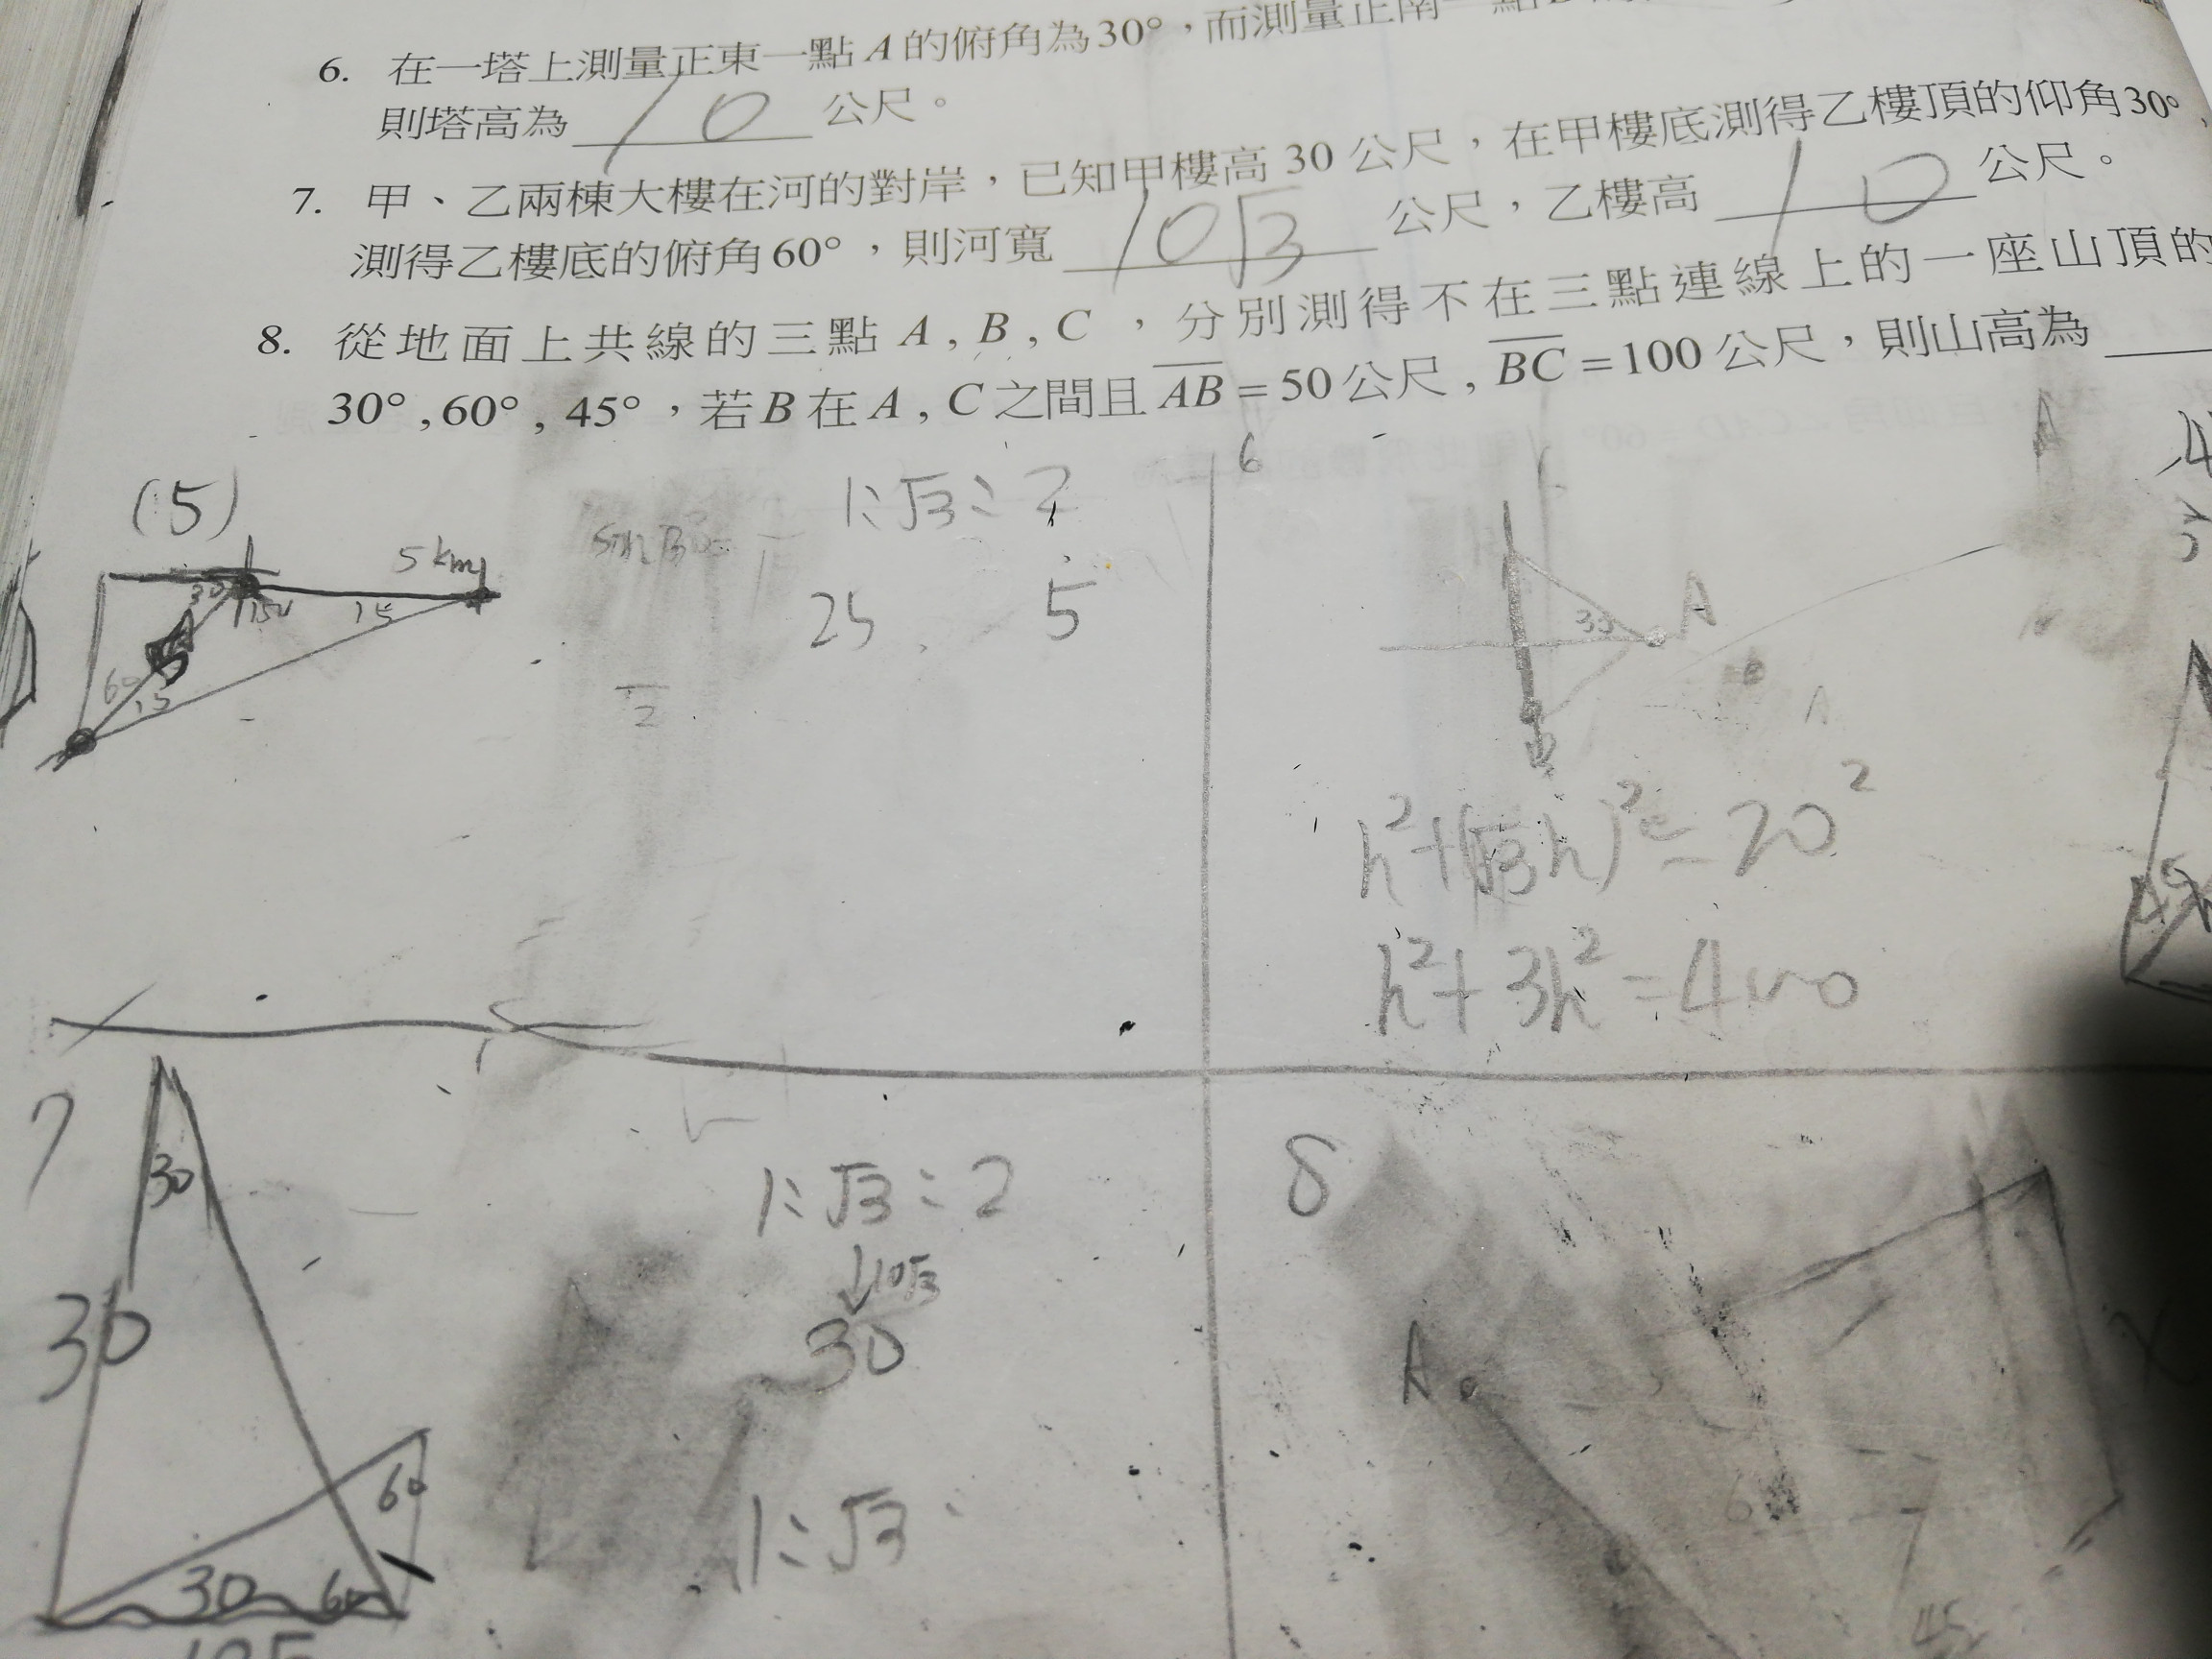 6. 在一塔上測量正東一點A的俯角為30°,而測量正南一點
則塔高為 10 公尺。
7. 甲、乙兩棟大樓在河的對岸,已知甲樓高30公尺,在甲樓底測得乙樓頂的仰角30°,
測得乙樓底的俯角60°,則河寬 10√3 公尺,乙樓高 10 公尺。
8. 從地面上共線的三點A,B,C,分別測得不在三點連線上的一座山頂的
30°,60°,45°,若B在A,C之間且AB=50公尺,BC=100公尺,則山高為
(5)
5km
30
150
15
60
15
1:√3:2
25 5
2
6
A
30
A
B
h²+(√3h)²=20²
h²+3h²=400
45
7
30
30
60
30 60
1:√3:2
↓10√3
30
1:√3:
8
A
6
45